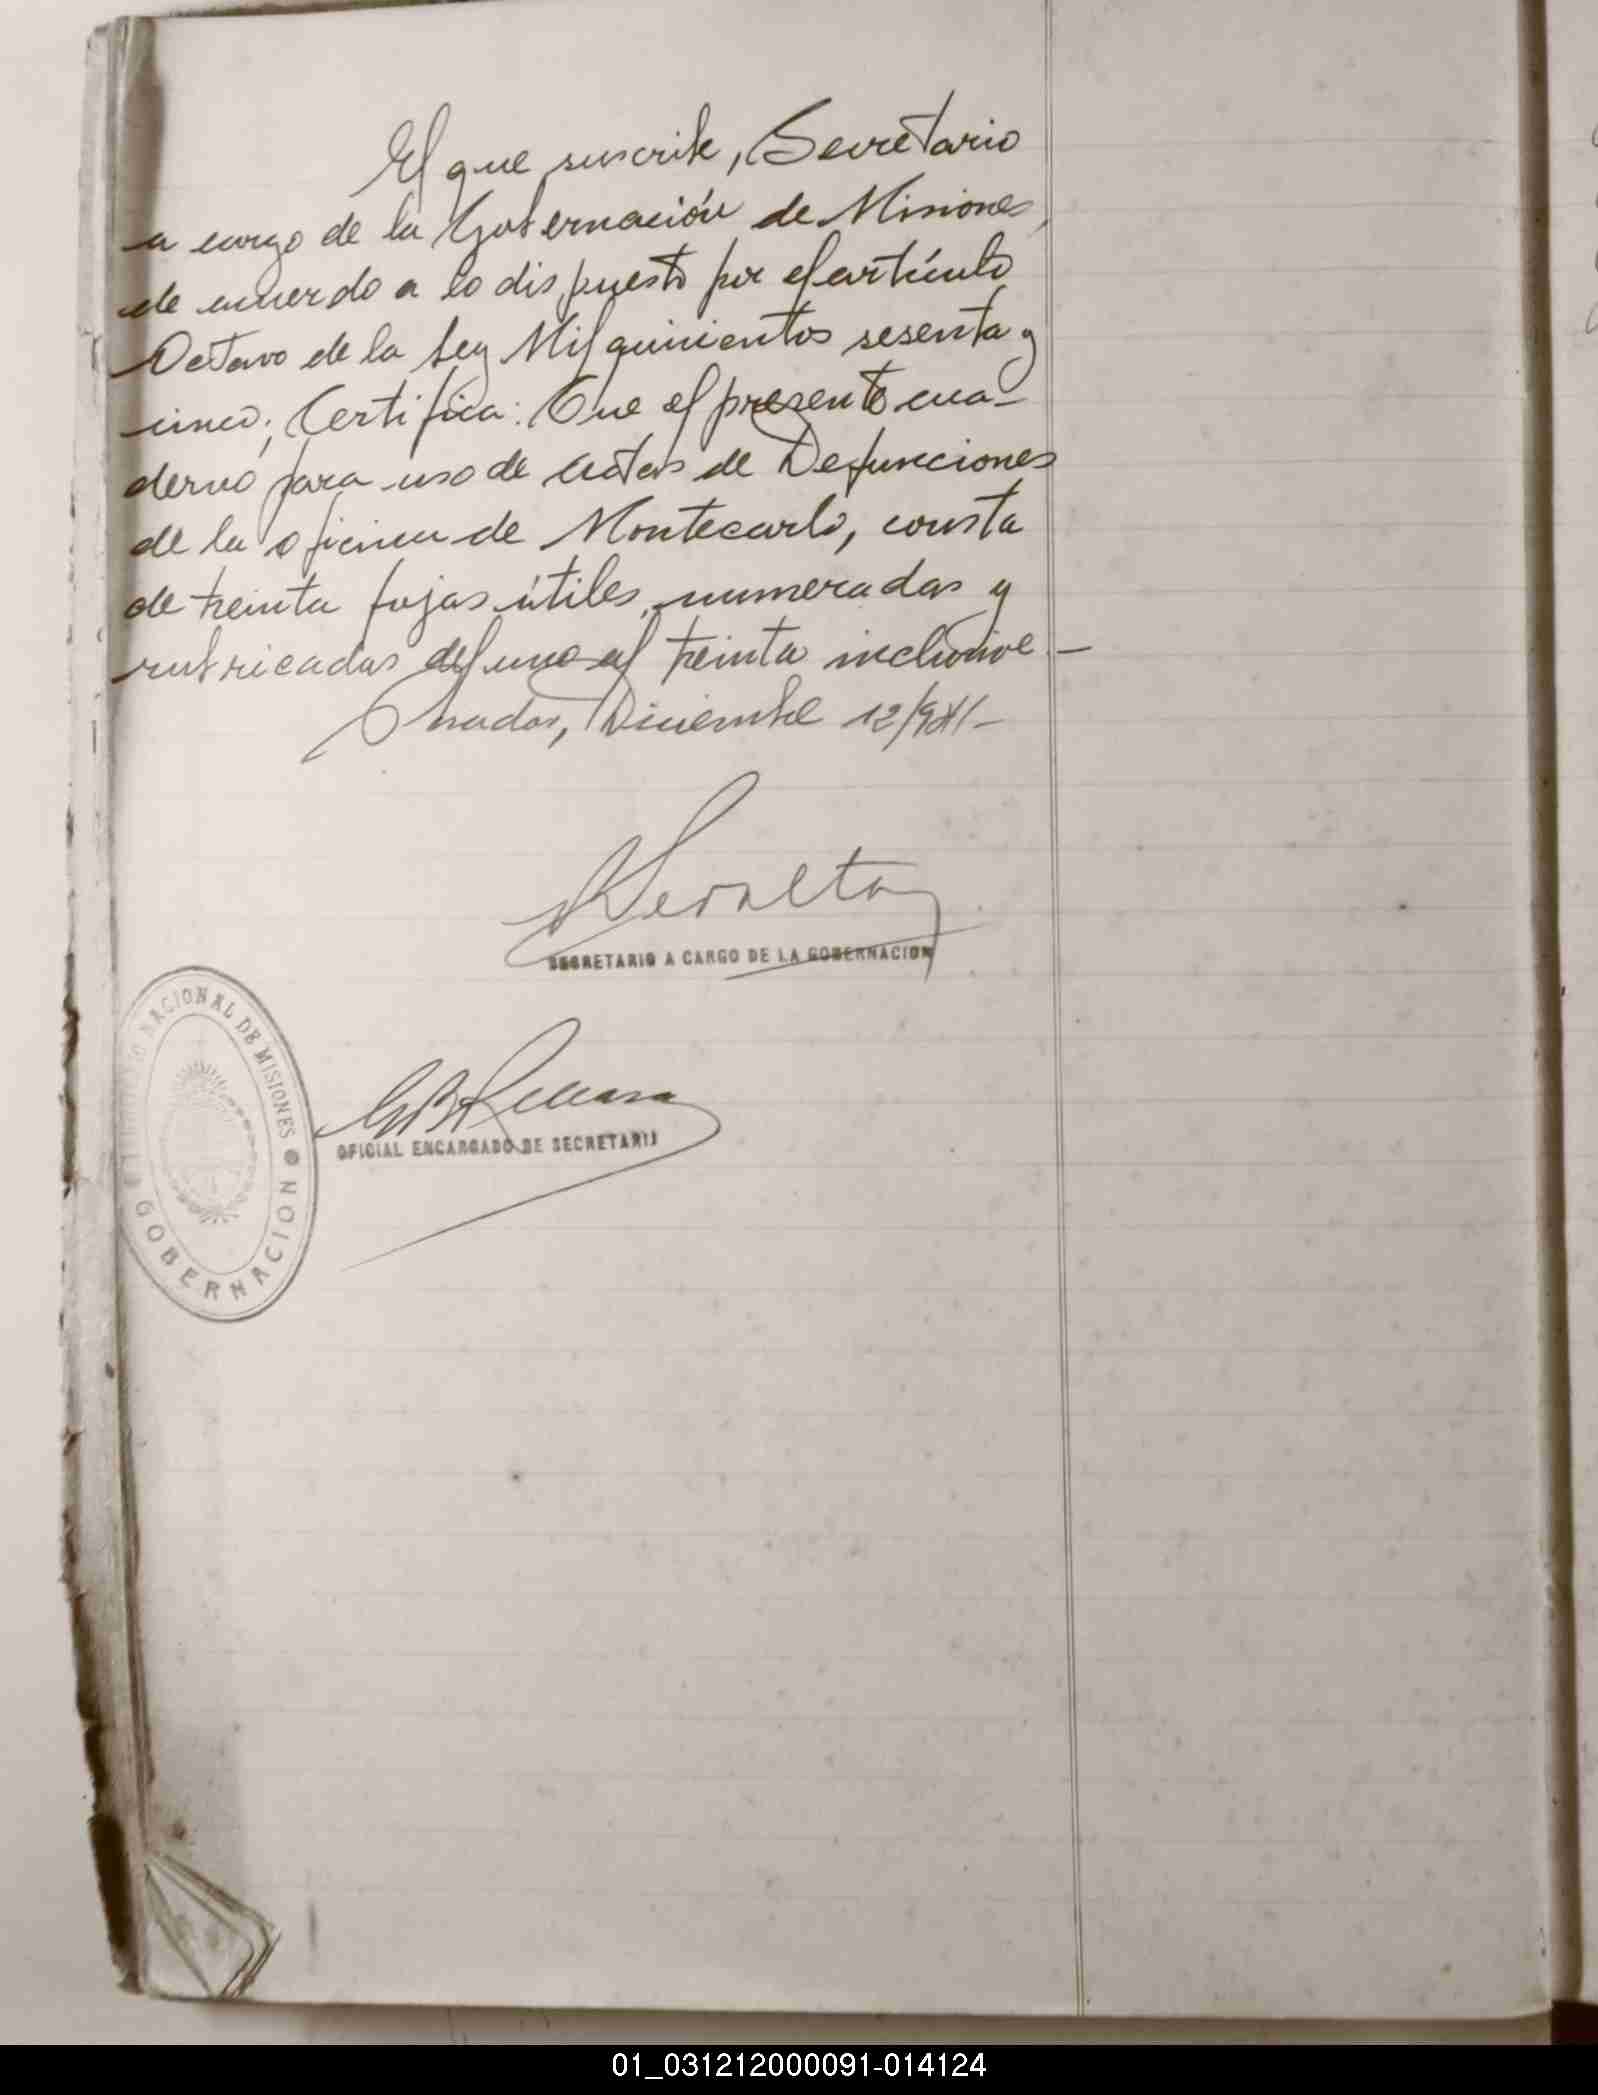 El que suscribe, Secretario
a cargo de la Gobernación de Misiones,
de acuerdo a lo dispuesto por el artículo
Octavo de la Ley Mil quinientos sesenta y
cinco; Certifica: Que el presente cua-
derno para uso de actas de Defunciones
de la oficina de Montecarlo, consta
de treinta fojas útiles, numeradas y
rubricadas del uno al treinta inclusive.—
Posadas, Diciembre 12/941-
Peralta
SECRETARIO A CARGO DE LA GOBERNACION
OFICIAL ENCARGADO DE SECRETARIA
TERRITORIO NACIONAL DE MISIONES
GOBERNACION
01_031212000091-014124